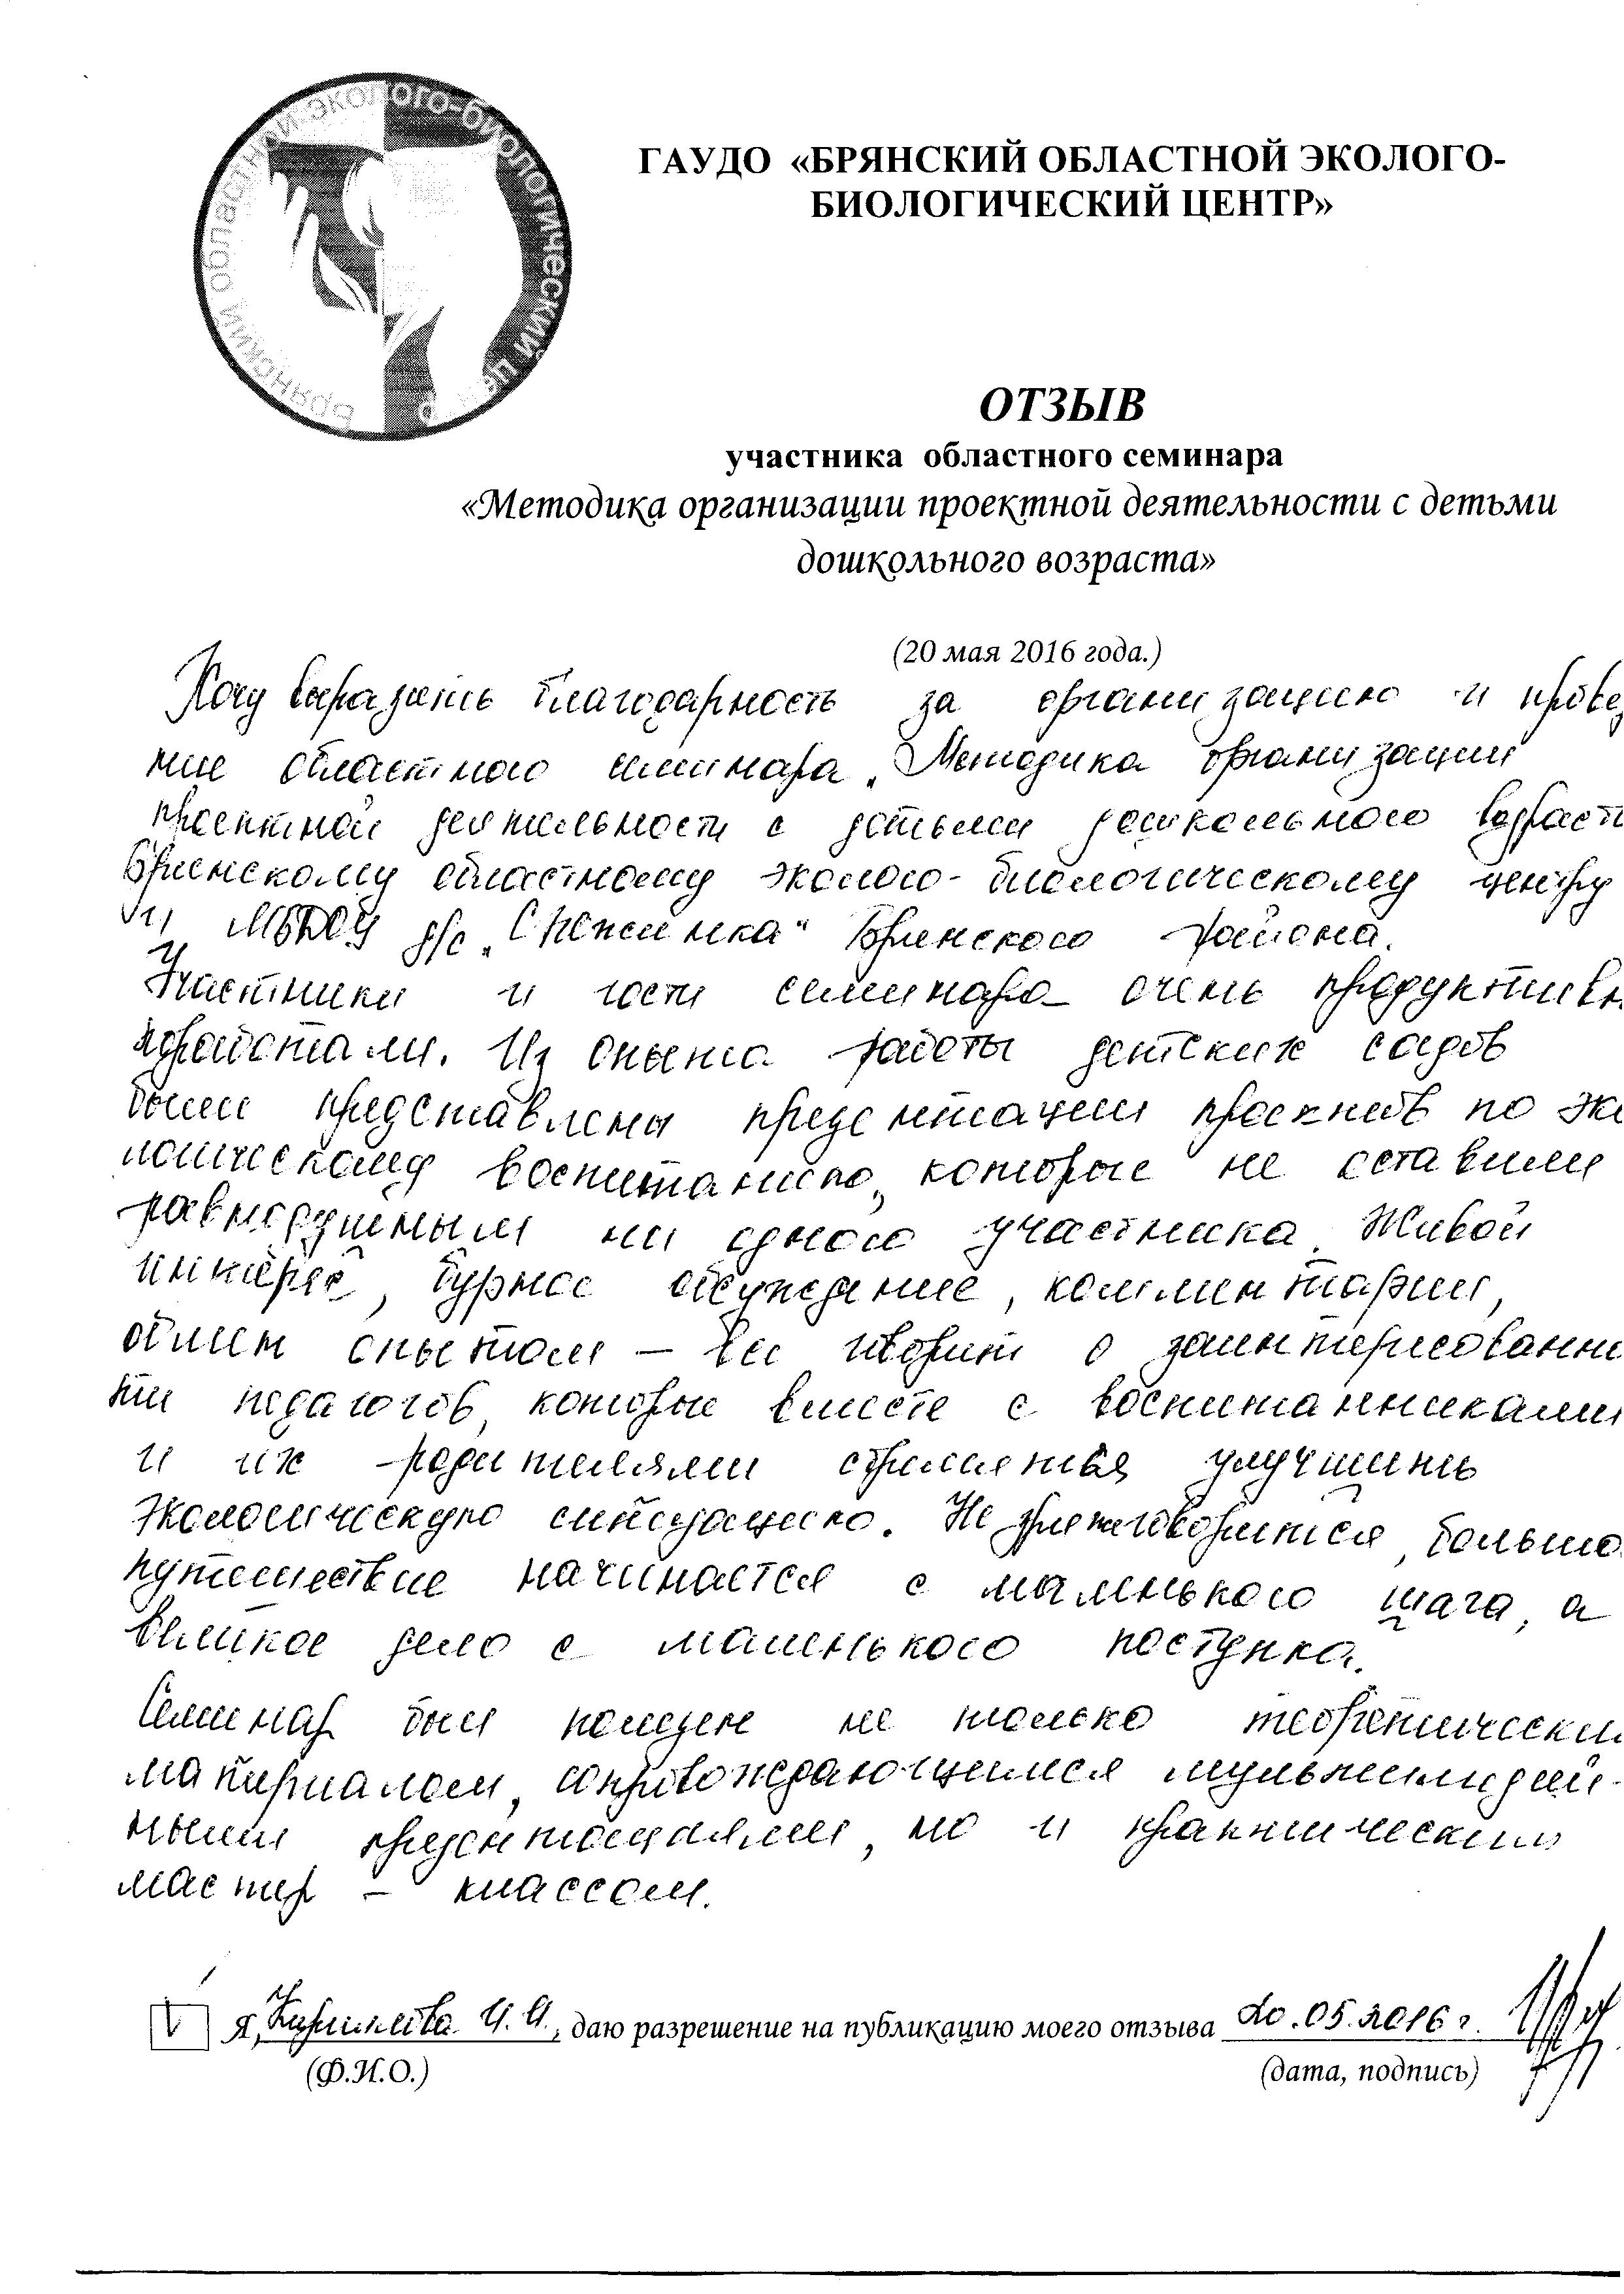 Брянский областной эколого-биологический це р
ГАУДО «БРЯНСКИЙ ОБЛАСТНОЙ ЭКОЛОГО-
БИОЛОГИЧЕСКИЙ ЦЕНТР»
ОТЗЫВ
участника областного семинара
«Методика организации проектной деятельности с детьми
дошкольного возраста»
(20 мая 2016 года.)
Хочу выразить благодарность за организацию и прове
ние областного семинара „Методика организации
проектной деятельности с детьми дошкольного возраст
Брянскому областному эколого-биологическому центру
и МБДОУ д/с „Снежинка" Брянского района.
Участники и гости семинара очень продуктивн
поработали. Из опыта работы детских садов
были представлены презентации проектов по эко
логическому воспитанию, которые не оставили
равнодушным ни одного участника. Живой
интерес, бурное обсуждение, комментарии,
обмен опытом – все говорит о заинтересованно
ти педагогов, которые вместе с воспитанниками
и их родителями стремятся улучшить
экологическую ситуацию. Не зря же говорится, большо
путешествие начинается с маленького шага, а
великое дело с маленького поступка.
Семинар был полезен не только теоретически
материалом, сопровождающимся мультимедий-
ными презентациями, но и практическим
мастер – классом.
V я, И. И., даю разрешение на публикацию моего отзыва 20.05.2016 г.
(Ф.И.О.) (дата, подпись)